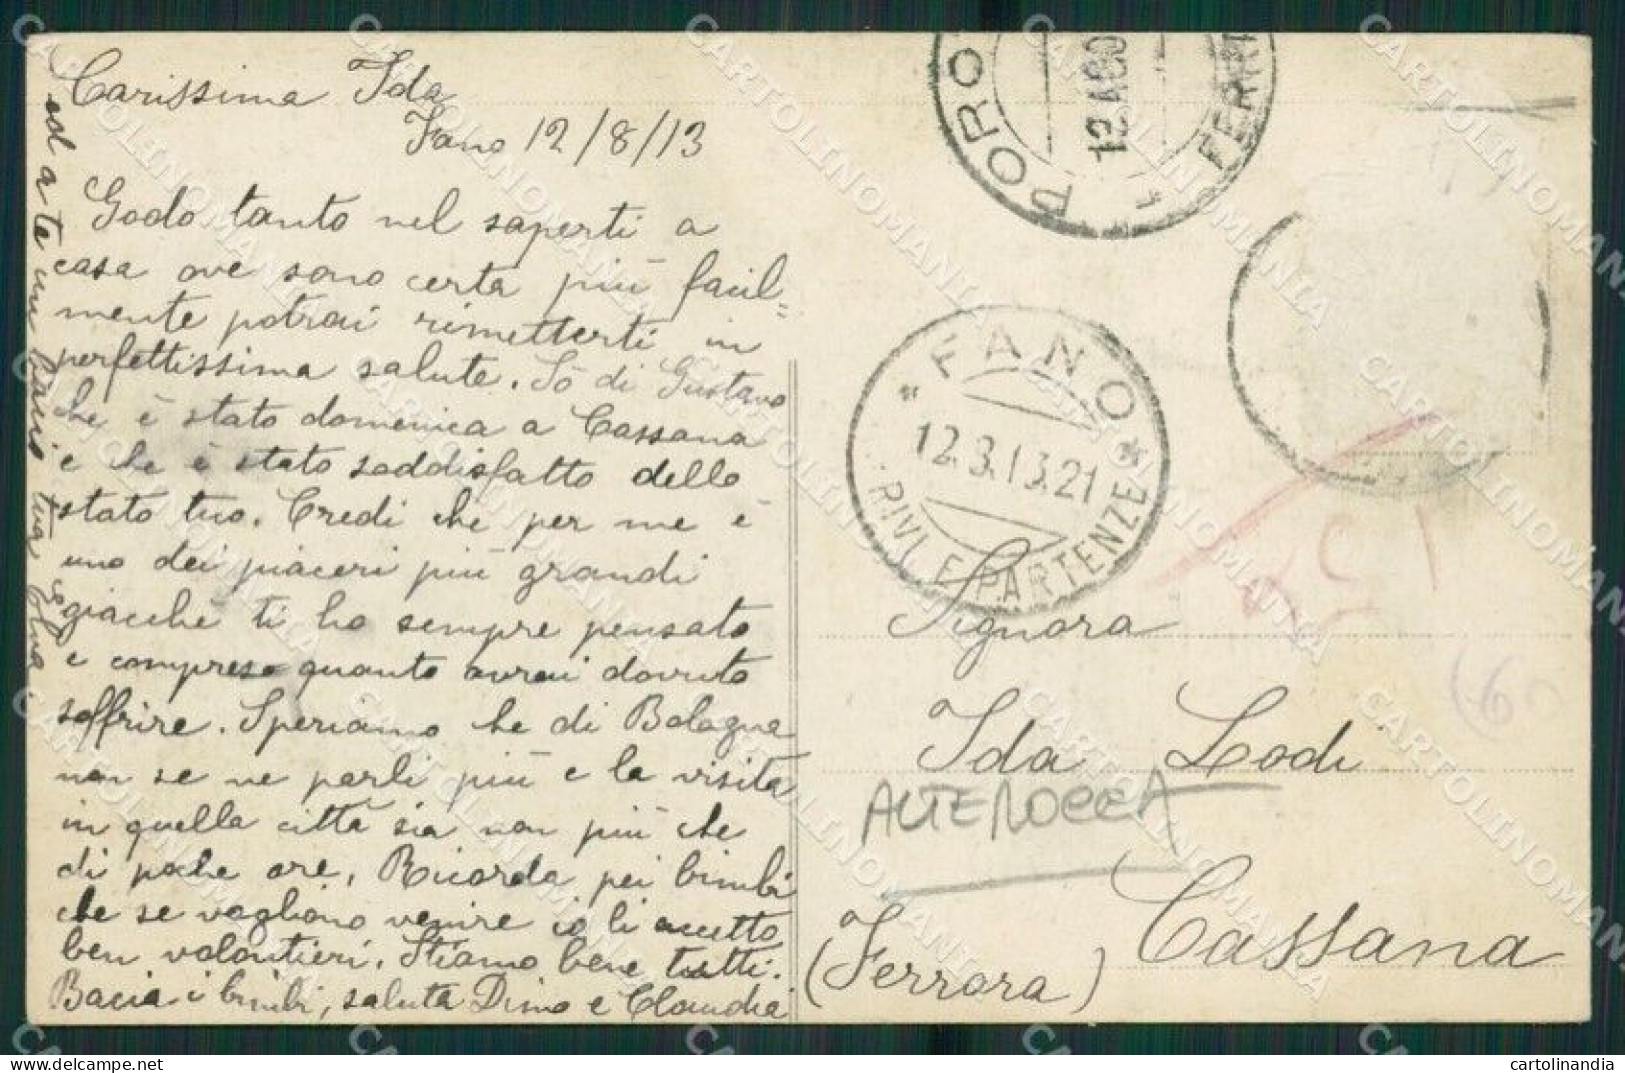 Carissima Ida
Fano 12/8/13
Godo tanto nel saperti a
casa ove sono certa più facil=
mente potrai rimetterti in
perfettissima salute. Sò di Gustavo
che è stato domenica a Cassana
e che è stato soddisfatto dello
stato tuo. Credi che per me è
uno dei piaceri più grandi
giacchè ti ho sempre pensato
e compreso quanto avrai dovuto
soffrire. Speriamo che di Bologna
non se ne parli più e la visita
in quella città sia non più che
di poche ore. Ricorda pei bimbi
che se vogliono venire io li accetto
ben volontieri. Stiamo bene tutti.
Bacia i bimbi, saluta Dino e Claudia
ed a te un bacio tua
PORO
12 AGO
FERR
FANO
12.8.13.21
ARRIVI E PARTENZE
Signora
Ida Lodi
ALTEROCCA
Cassana
(Ferrara)
CARTOLINOMANIA
cartolinandia